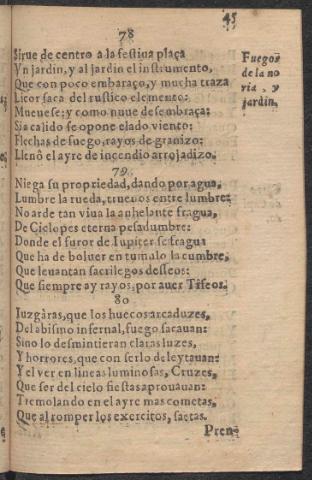 45
78
Sirue de centro a la festiua plaça
Vn jardin, y al jardin el instrumento,
Que con poco embaraço, y mucha traza
Licor saca del rustico elemento:
Mueuese; y como nuue desembraça:
Sia calido se opone elado viento:
Flechas de fuego, rayos de granizo:
Llenò el ayre de incendio arrojadizo.
Fuegos
de la no
ria, y
jardin,
79
Niega su propriedad, dando por agua,
Lumbre la rueda, truenos entre lumbre:
No arde tan viua la anhelante fragua,
De Ciclopes eterna pesadumbre:
Donde el furor de Iupiter se fragua
Que ha de boluer en tumulo la cumbre,
Que leuantan sacrilegos desseos:
Que siempre ay rayos, por auer Tifeos.
80
Iuzgàras, que los huecos arcaduzes,
Del abismo infernal, fuego sacauan:
Sino lo desmintieran claras luzes,
Y horrores, que con serlo deleytauan:
Y el ver en lineas luminosas, Cruzes,
Que ser del cielo fiestas aprouauan:
Tremolando en el ayre mas cometas,
Que al romper los exercitos, saetas.
Pren-